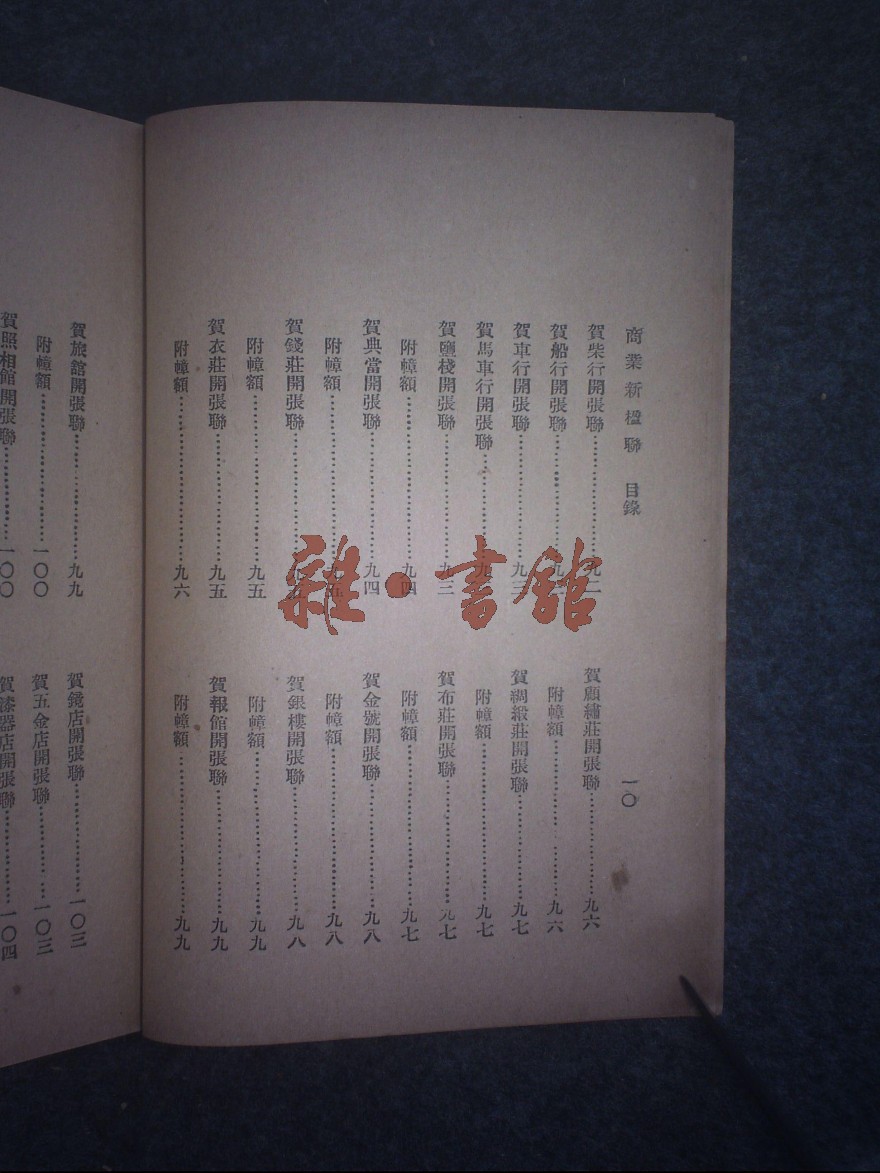 商業新楹聯 目錄 一〇
賀柴行開張聯……………九二
賀船行開張聯……………九
賀車行開張聯……………九三
賀馬車行開張聯……………九
賀鹽棧開張聯……………九三
附幛額……………九四
賀典當開張聯……………九四
附幛額……………九五
賀錢莊開張聯……………九五
附幛額……………九五
賀衣莊開張聯……………九五
附幛額……………九六
賀顧繡莊開張聯……………九六
附幛額……………九六
賀綢緞莊開張聯……………九七
附幛額……………九七
賀布莊開張聯……………九七
附幛額……………九七
賀金號開張聯……………九八
附幛額……………九八
賀銀樓開張聯……………九八
附幛額……………九九
賀報館開張聯……………九九
附幛額……………九九
賀旅館開張聯……………九九
附幛額……………一〇〇
賀照相館開張聯……………一〇〇
賀鏡店開張聯……………一〇三
賀五金店開張聯……………一〇三
賀漆器店開張聯……………一〇四
雜·書館